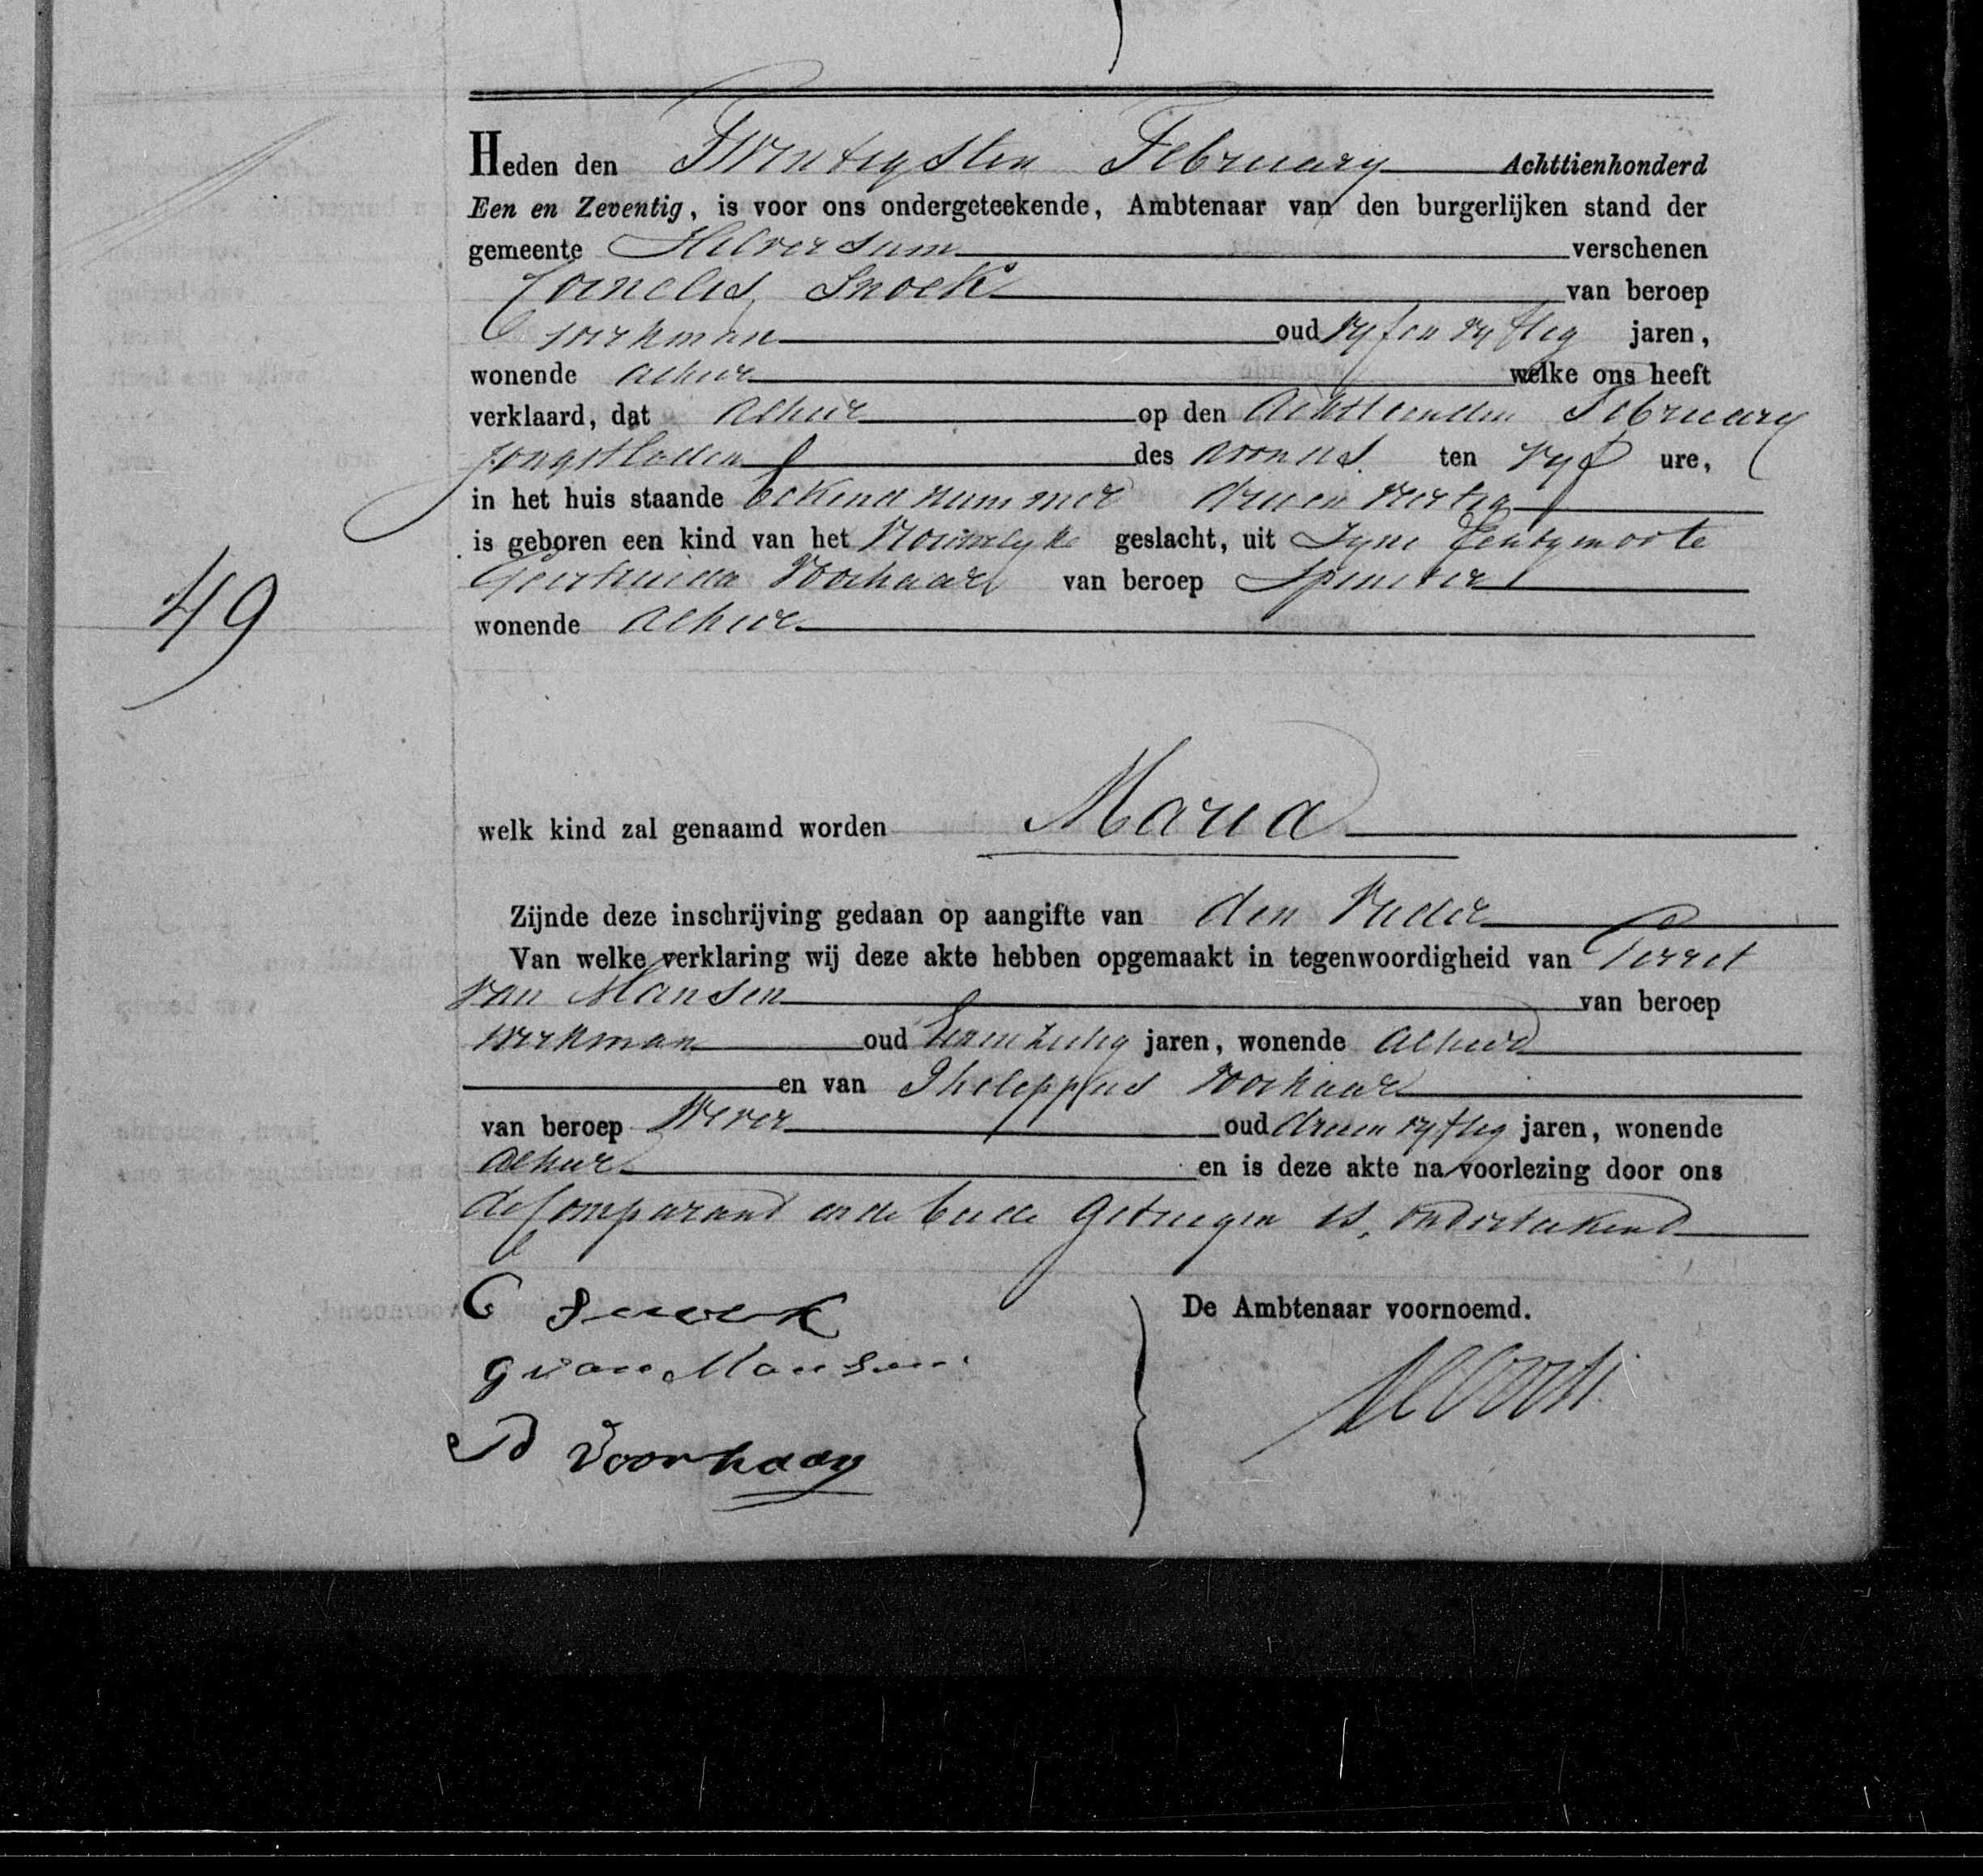 Heden den Twintigsten February Achttienhonderd
Een en Zeventig, is voor ons ondergeteekende, Ambtenaar van den burgerlijken stand der
gemeente Hilversum verschenen
Cornelis Snoek van beroep
werkman oud vyf en vyftig jaren,
wonende alhier welke ons heeft
verklaard, dat alhier op den achttienden February
jongstleden des avonds ten vyf ure,
in het huis staande nummer drie en veertig
is geboren een kind van het Vrouwelyke geslacht, uit Zyne Echtgenoote
Geertruida Voorhaar van beroep Spinster
wonende alhier
49
welk kind zal genaamd worden Maria
Zijnde deze inschrijving gedaan op aangifte van den Vader
Van welke verklaring wij deze akte hebben opgemaakt in tegenwoordigheid van Gerret
van Mansen van beroep
werkman oud jaren, wonende alhier
en van Philippus Voorhaar
van beroep Wever oud drie en vyftig jaren, wonende
alhier en is deze akte na voorlezing door ons
de Comparant en de beide Getuigen is, onderteekend
C Snoek
G van Mansen
P Voorhaar
De Ambtenaar voornoemd.